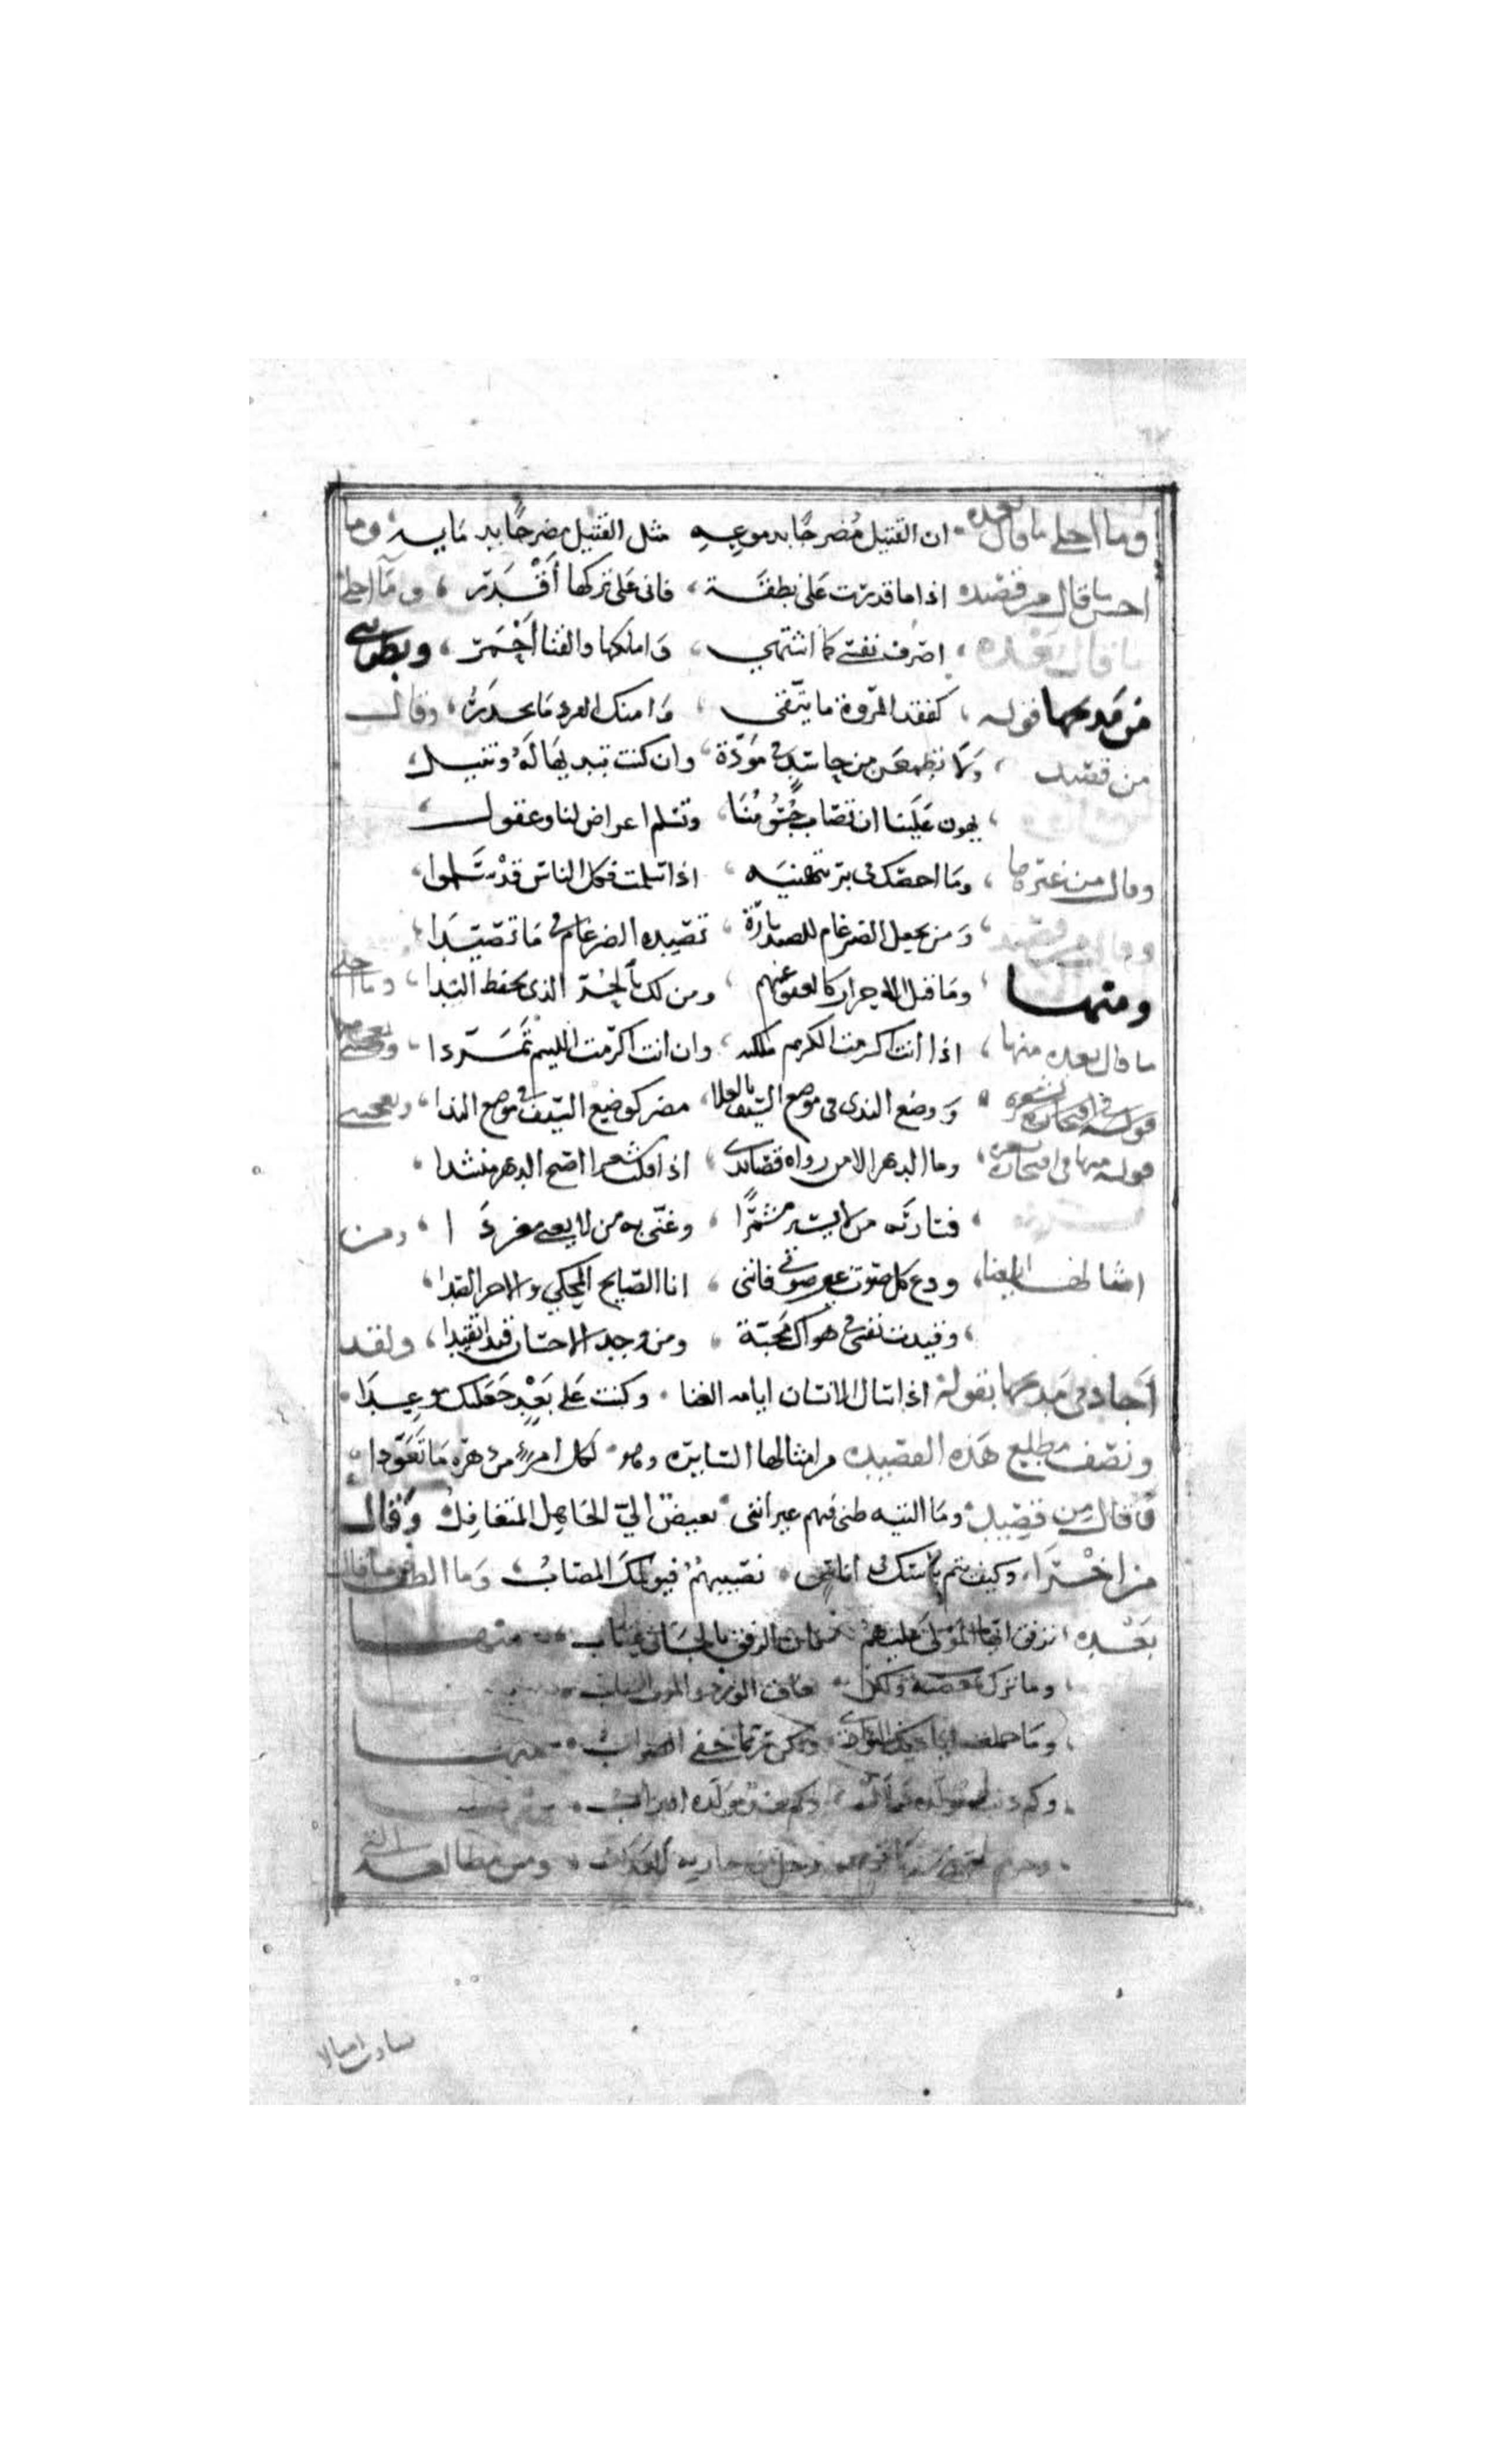 وما احلى ما قال بعده ان القتيل مضرجا بدموعه مثل القتيل مضرجا بدمايه وما
احسن ما قال من قصيده اذا ما قدرت على نطقة فانى على تركها أقْدَر وما احلى
ما قال بعْده اصرف نفسي كما اشتهي واملكها والقنا احمر ويطربني
من مديحها قوله كفقد المروة ما يتقى وامنك العرد ما يحدر وقال
من قصيد ولا تطمعن من حاسد في مودة وان كنت تبديها له وتنيل
يهون علينا ان تصاب جسُومُنا وتسلم اعراض لنا وعقول
وقال من غيرها وما اخصك في بر بتهنيه اذا سلمت فكل الناس قد سلموا
وقال من قصيد ومن يجعل الضرغام للصيد بازه تصيده الضرغام في ما تصيدا
ومنها وما قتل الاحرار كالعفو عنهم ومن لك بالحر الذى يحفظ اليدا وما احلى
ما قال بعده منها اذا انت اكرمت الكريم ملكته وان انت اكرمت اللييم تمردا ويعجبني
قوله في افتخاره بشعره ووضع الندى في موضع السيف بالعلا مضر كوضع السيف في موضع الندا ويعجبني
قوله منها في افتخاره بشعره وما الدهر الا من رواه قصائدي اذا قلت شعرا اصبح الدهر منشدا
فسار به من لا يسير مشمرًا وغنى به من لا يغني مغردَا ومن
امثالها ايضا ودع كل صوت غير صوتى فانني انا الصايح المحكي والاخر الصدا
وقيدت نفسي في هواك محبة ومن وجد الاحسان قيدا تقيدا ولقد
أجاد في مديحها بقوله اذا سال الانسان ايامه الغنا وكنت على بعْدٍ جَعَلنك موعدَا
ونصف مطلع هذه القصيده من امثالها السايره وهو لكل امرءٍ من دهره ما تعودا
وقال من قصيد وما التيه طبي فيهم غير انني بغيض الي الجاهل المتغافل وقال
من اخْترَا وكيف يتم باسك في اناس تصيبهُمُ فيولمك المصاب وما الطف ما قال
بعْده ترفق ايها المولى عليهم فان الرفق بالجاني عتاب منها
وما تركوك معصية ولكن يعاف الورد والموت الشراب
وما جهلت اياديك البوادي ولكن ربما خفي الصواب منها
وكم ذنب مولده دلال وكم بعد مولده اقتراب
وجرم جره سفهاء قوم وحل بغير جارمه العذاب ومن مطالعه التي